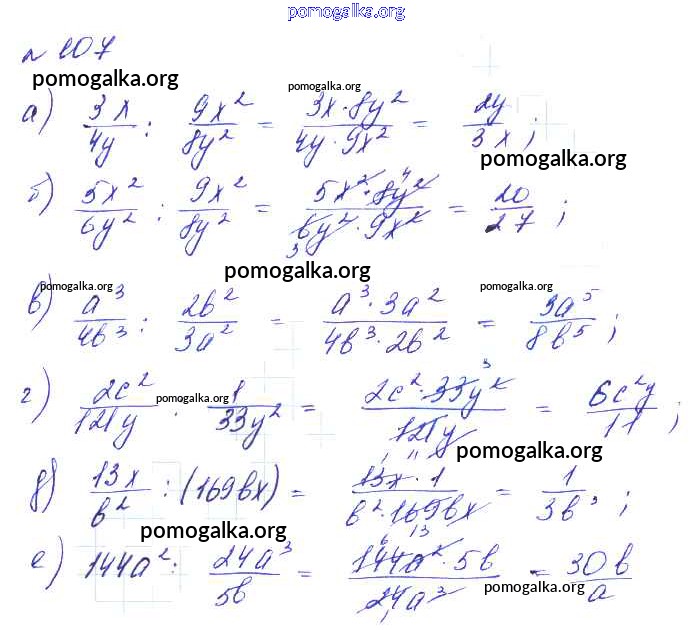 pomogalka.org
№ 107
pomogalka.org
pomogalka.org
а) 3x/4y : 9x²/8y² = 3x·8y²/4y·9x² = 2y/3x ;
pomogalka.org
б) 5x²/6y² : 9x²/8y² = 5x²·8y² 4/6y²·9x² 3 = 20/27 ;
pomogalka.org
pomogalka.org
pomogalka.org
в) a³/4b³ : 2b²/3a² = a³·3a²/4b³·2b² = 3a⁵/8b⁵ ;
pomogalka.org
г) 2c²/121y : 1/33y² = 2c²·33y² 3/121y 11 = 6c²y/11 ;
pomogalka.org
д) 13x/b² : (169bx) = 13x·1/b²·169bx 13 = 1/3b³ ;
pomogalka.org
е) 144a² : 24a³/5b = 144a²·5b 6/24a³ 1 = 30b/a
pomogalka.org